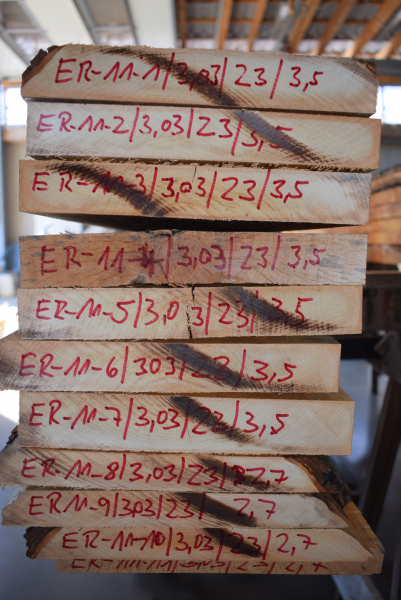 ER-11-1/3,03/23/3,5
ER-11-2/3,03/23/3,5
ER-11-3/3,03/23/3,5
ER-11-4/3,03/23/3,5
ER-11-5/3,03/23/3,5
ER-11-6/303/23/3,5
ER-11-7/3,03/23/3,5
ER-11-8/3,03/23/2,7
ER11-9/303/23/2,7
ER-11-10/3,03/23/2,7